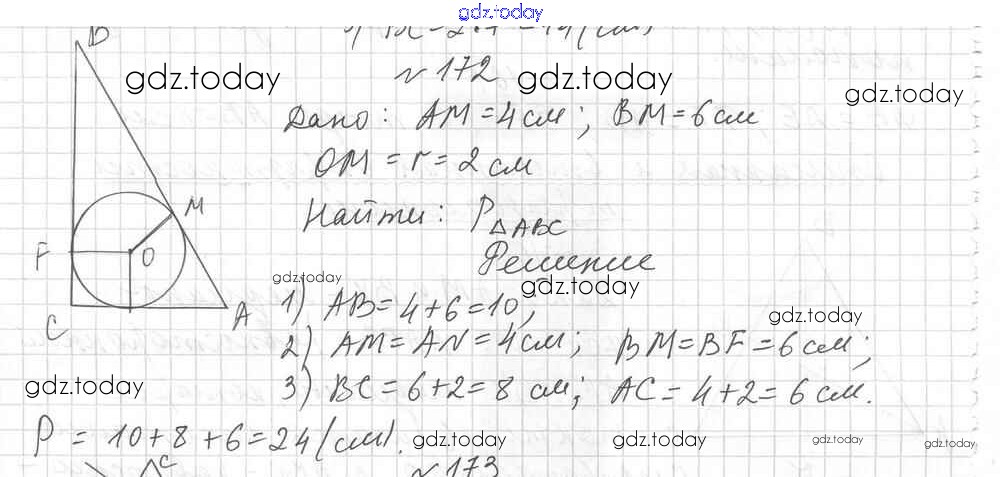 gdz.today
B
№172
gdz.today gdz.today gdz.today
Дано: AM = 4 см; BM = 6 см
OM = r = 2 см
M
Найти: P△ABC
F O
Решение
gdz.today gdz.today
C A
1) AB = 4 + 6 = 10;
gdz.today
2) AM = AN = 4 см; BM = BF = 6 см;
gdz.today
3) BC = 6 + 2 = 8 см; AC = 4 + 2 = 6 см.
P = 10 + 8 + 6 = 24 (см).
gdz.today gdz.today gdz.today gdz.today
C
№173